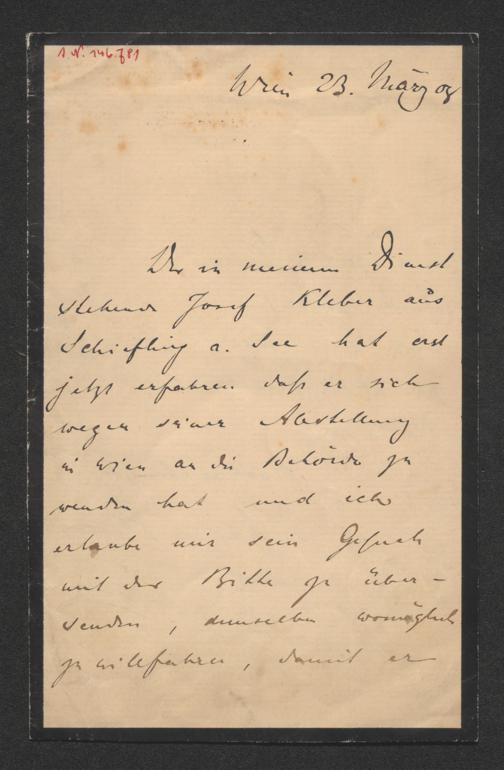 I.N. 146.781
Wien 23. März 08
Der in meinem Dienst
stehende Josef Kleber aus
Schiefling a. See hat erst
jetzt erfahren daß er sich
wegen seiner Abstellung
in Wien an die Behörde zu
wenden hat und ich
erlaube mir sein Gesuch
mit der Bitte zu über-
senden, demselben womöglich
zu willfahren, damit er